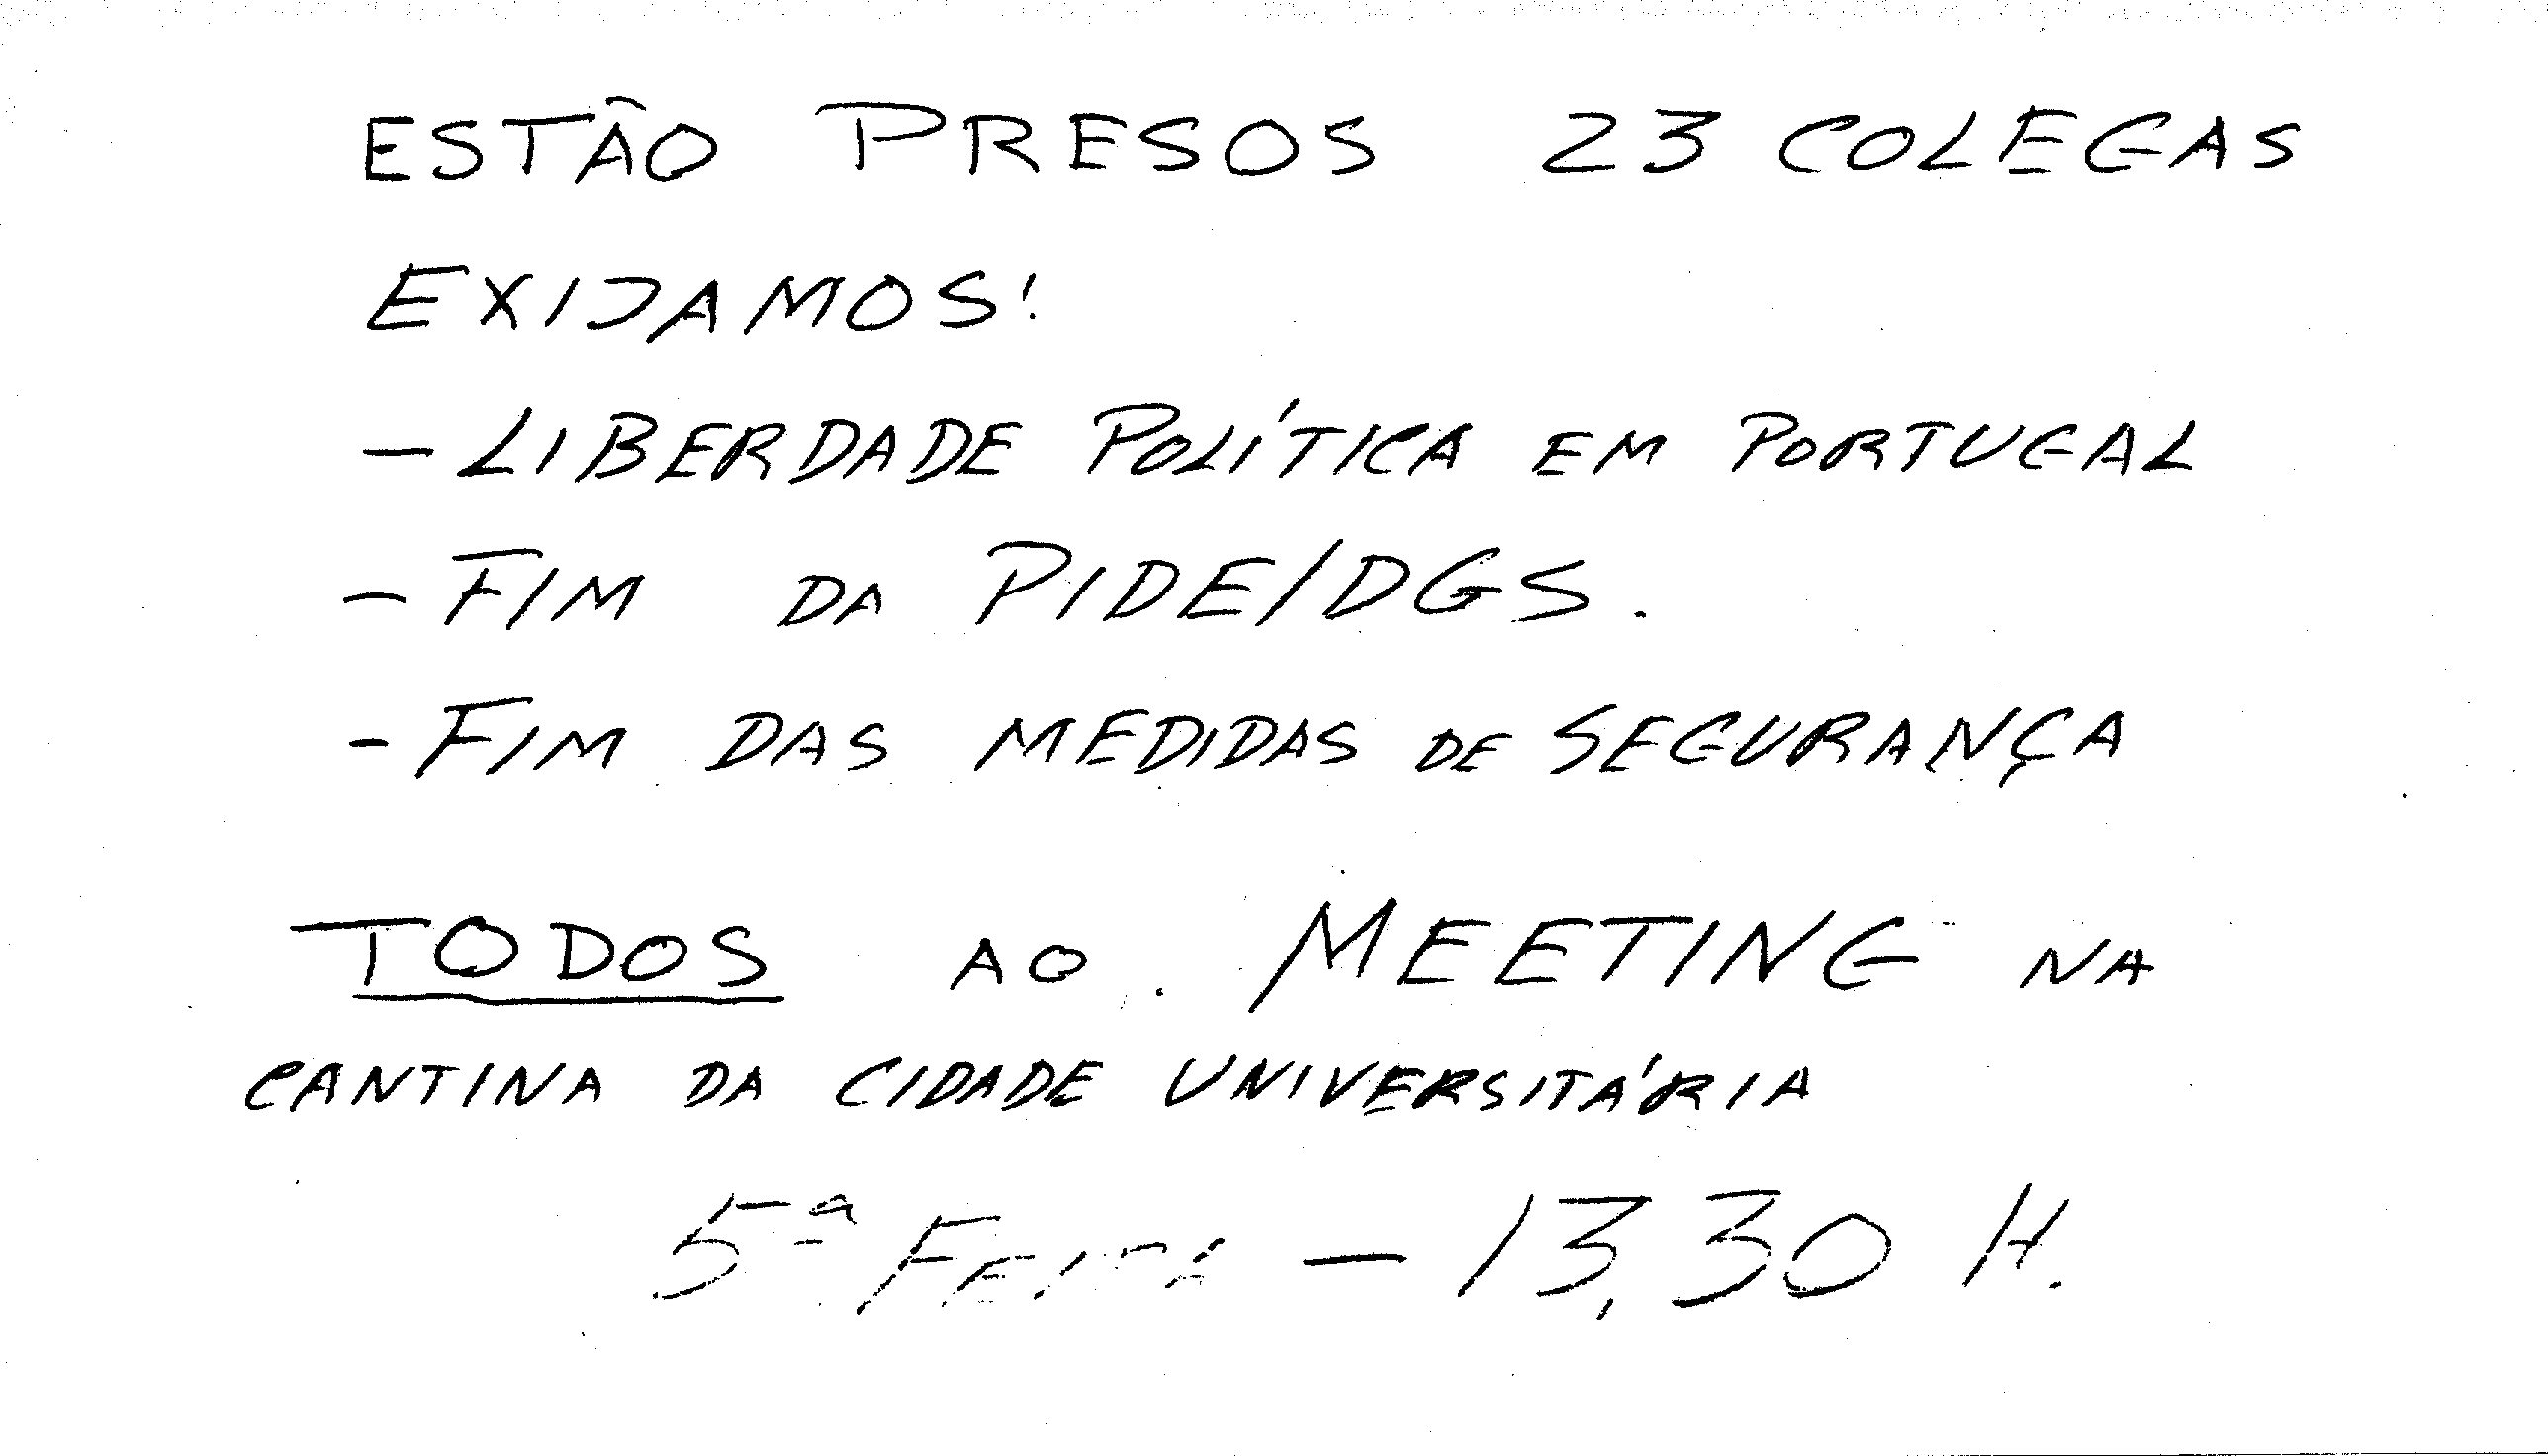 ESTÃO PRESOS 23 COLEGAS
EXIJAMOS!
- LIBERDADE POLÍTICA EM PORTUGAL
- FIM DA PIDE/DGS.
- FIM DAS MEDIDAS DE SEGURANÇA
TODOS AO MEETING NA
CANTINA DA CIDADE UNIVERSITÁRIA
5ª FEIRA - 13,30 H.